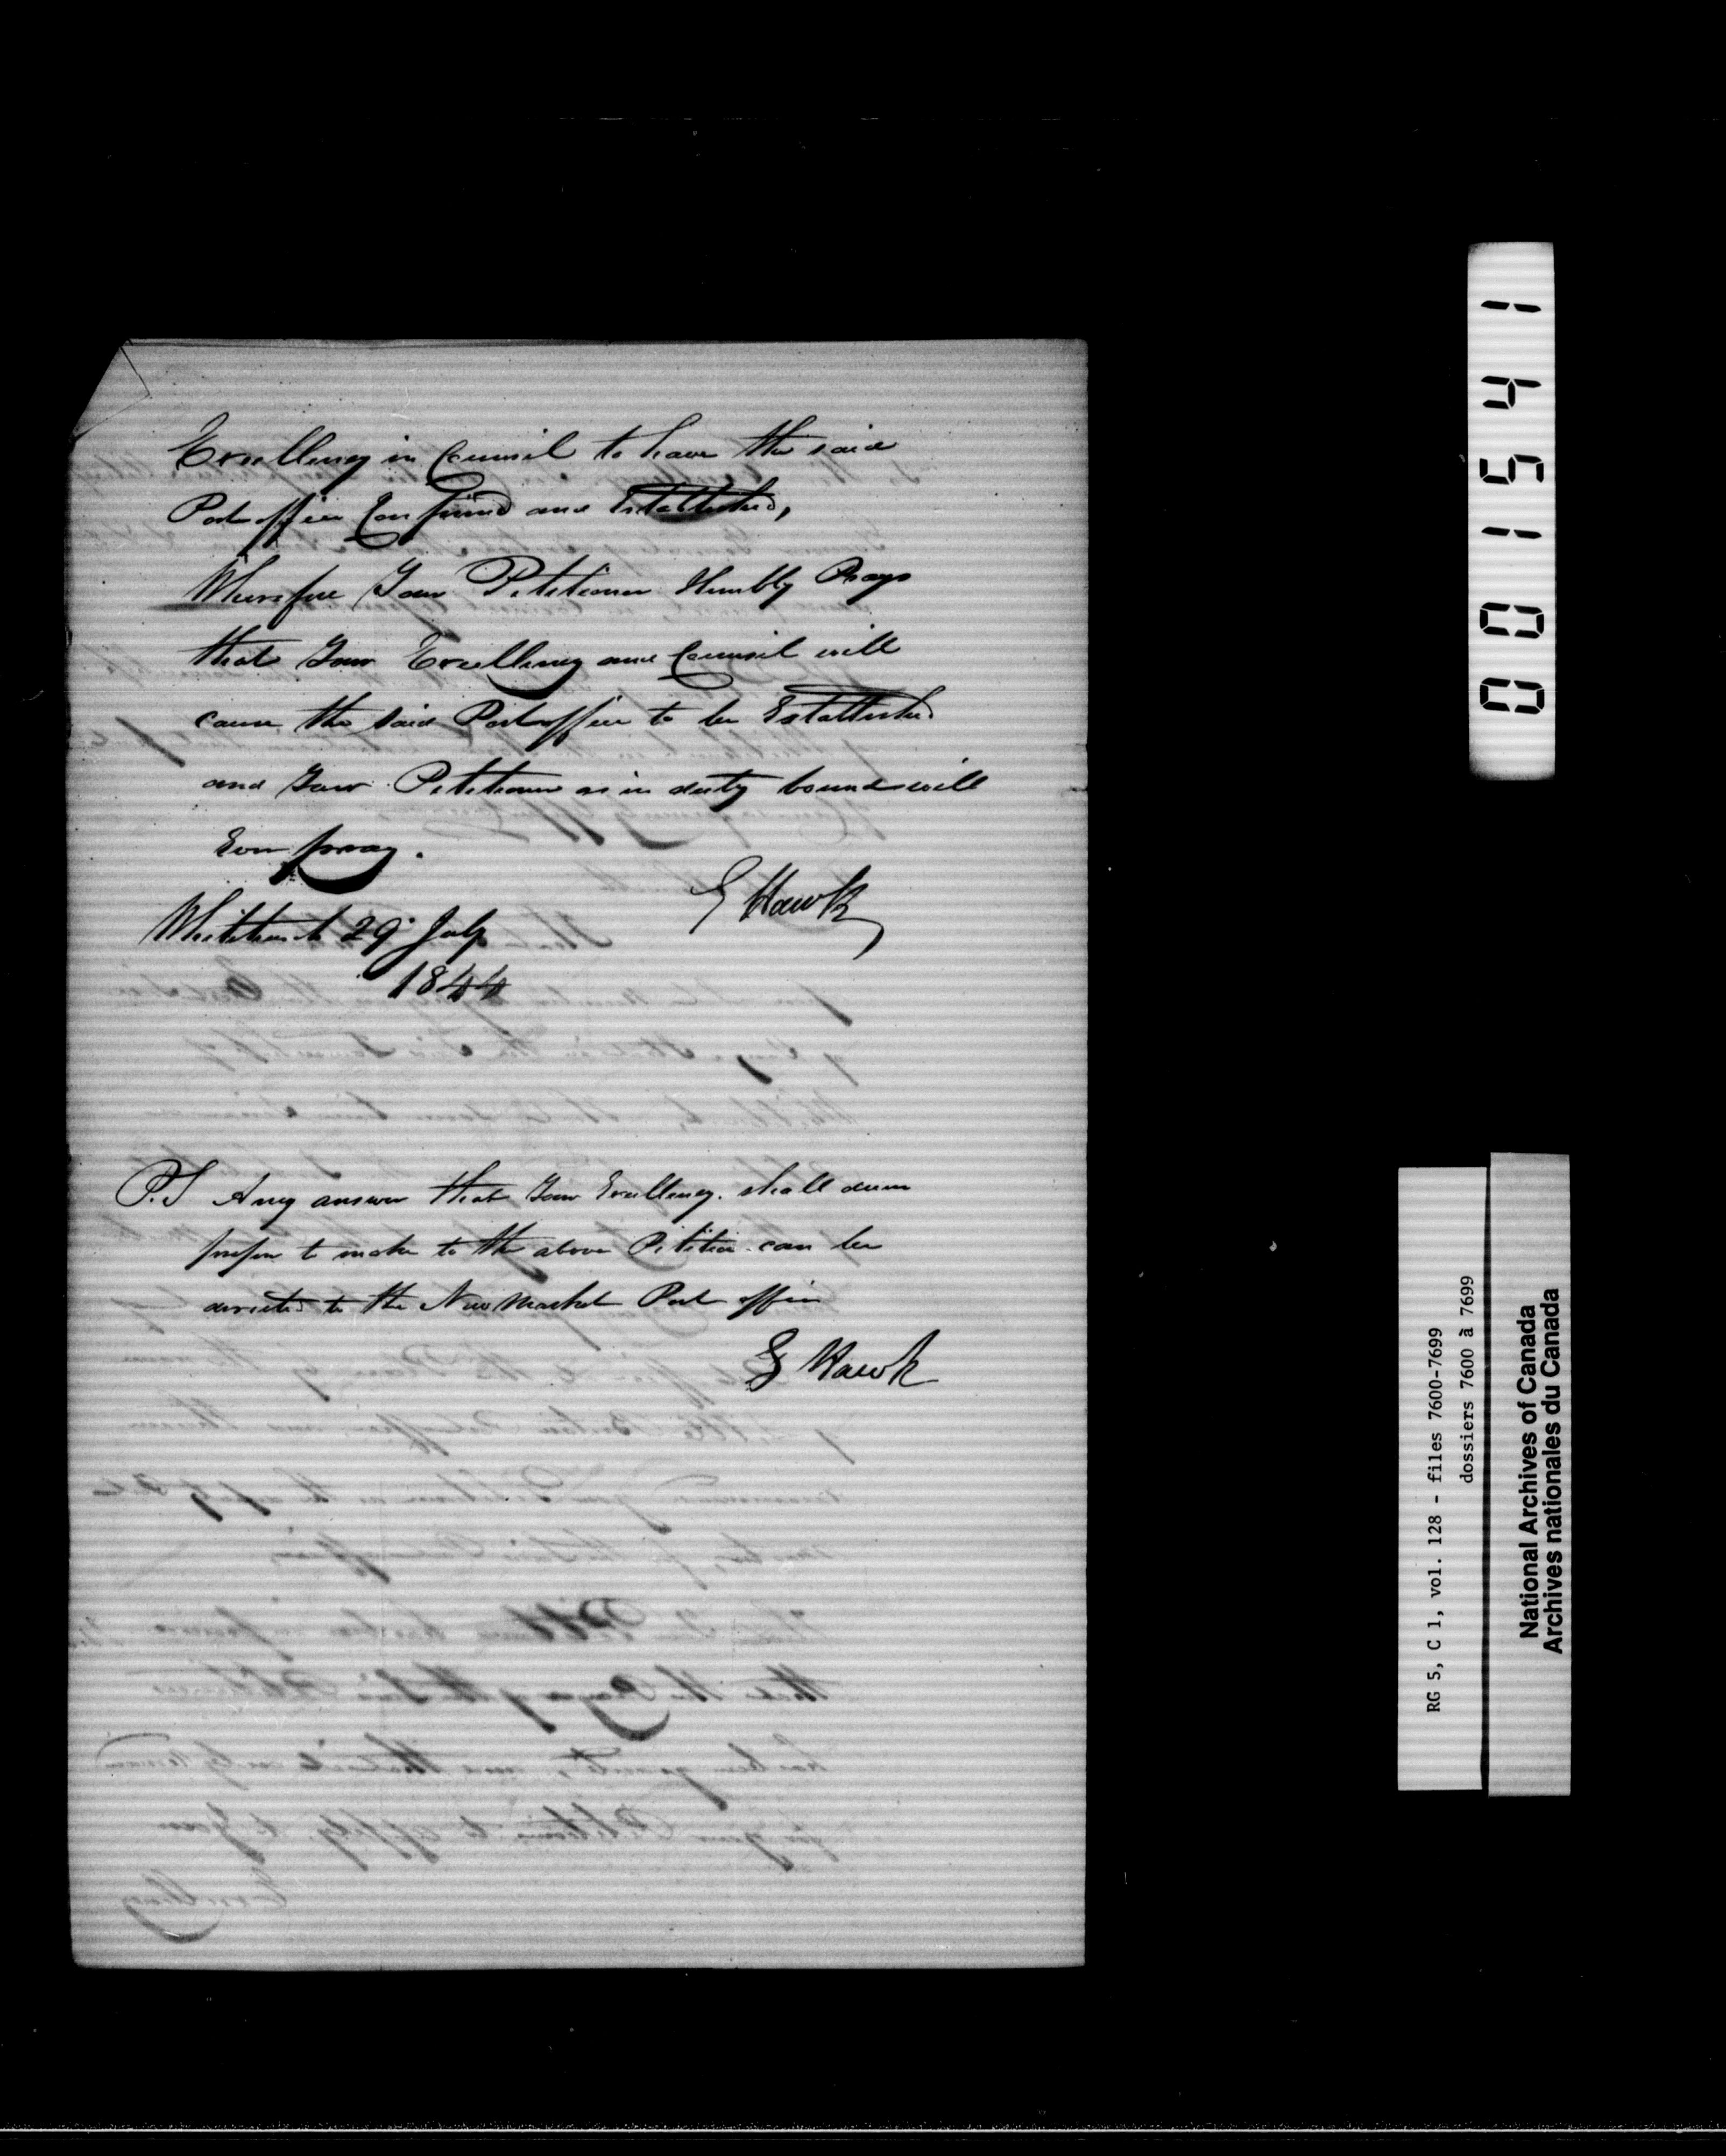 Excellency in Council to have the said
Post office Confirmed and Established,
Wherefore Your Petitioner Humbly Prays
that Your Excellency and Council will
cause the said Post office to be Established
and Your Petitioner as in duty bound will
Ever pray.
G Hawk
Whitchurch 29 July
1844
P.S Any answer that Your Excellency shall deem
proper to make to the above Petition can be
directed to the New Market Post office
G Hawk
001541
RG 5, C 1, vol. 128 - files 7600-7699
dossiers 7600 à 7699
National Archives of Canada
Archives nationales du Canada